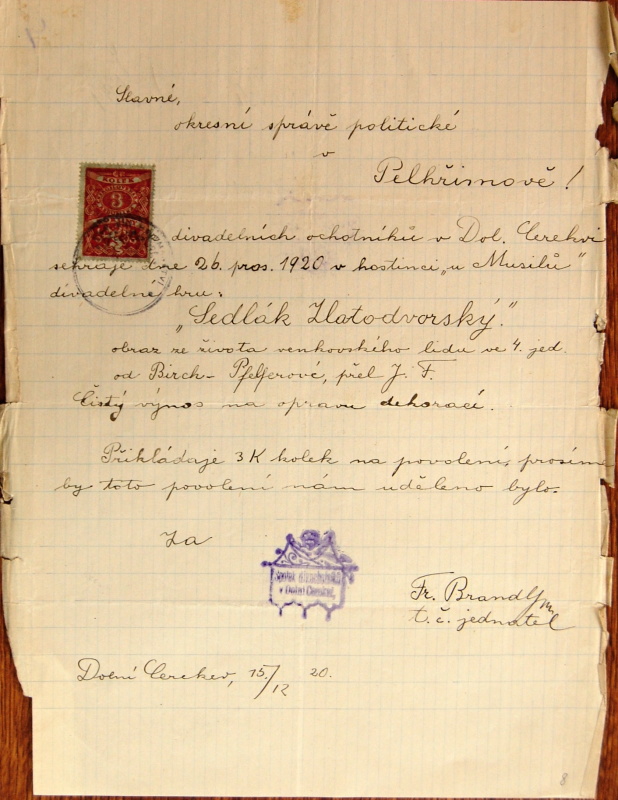 Slavné,
okresní správě politické
v
Pelhřimově!
KOLEK
3
divadelních ochotníků v Dol. Cerekvi
sehraje dne 26. pros. 1920 v hostinci „u Musilů"
divadelné hru:
„Sedlák Zlatodvorský."
obraz ze života venkovského lidu ve 4. jed.
od Birch-Pfelferové, přel J. F.
Čistý výnos na opravu dekorací.
Přikládaje 3K kolek na povolení, prosíme
by toto povolení nám uděleno bylo.
Za
v Dolní Cerekvi,
Fr. Brandl
t. č. jednatel
Dolní Cerekev, 15./12 20.
8